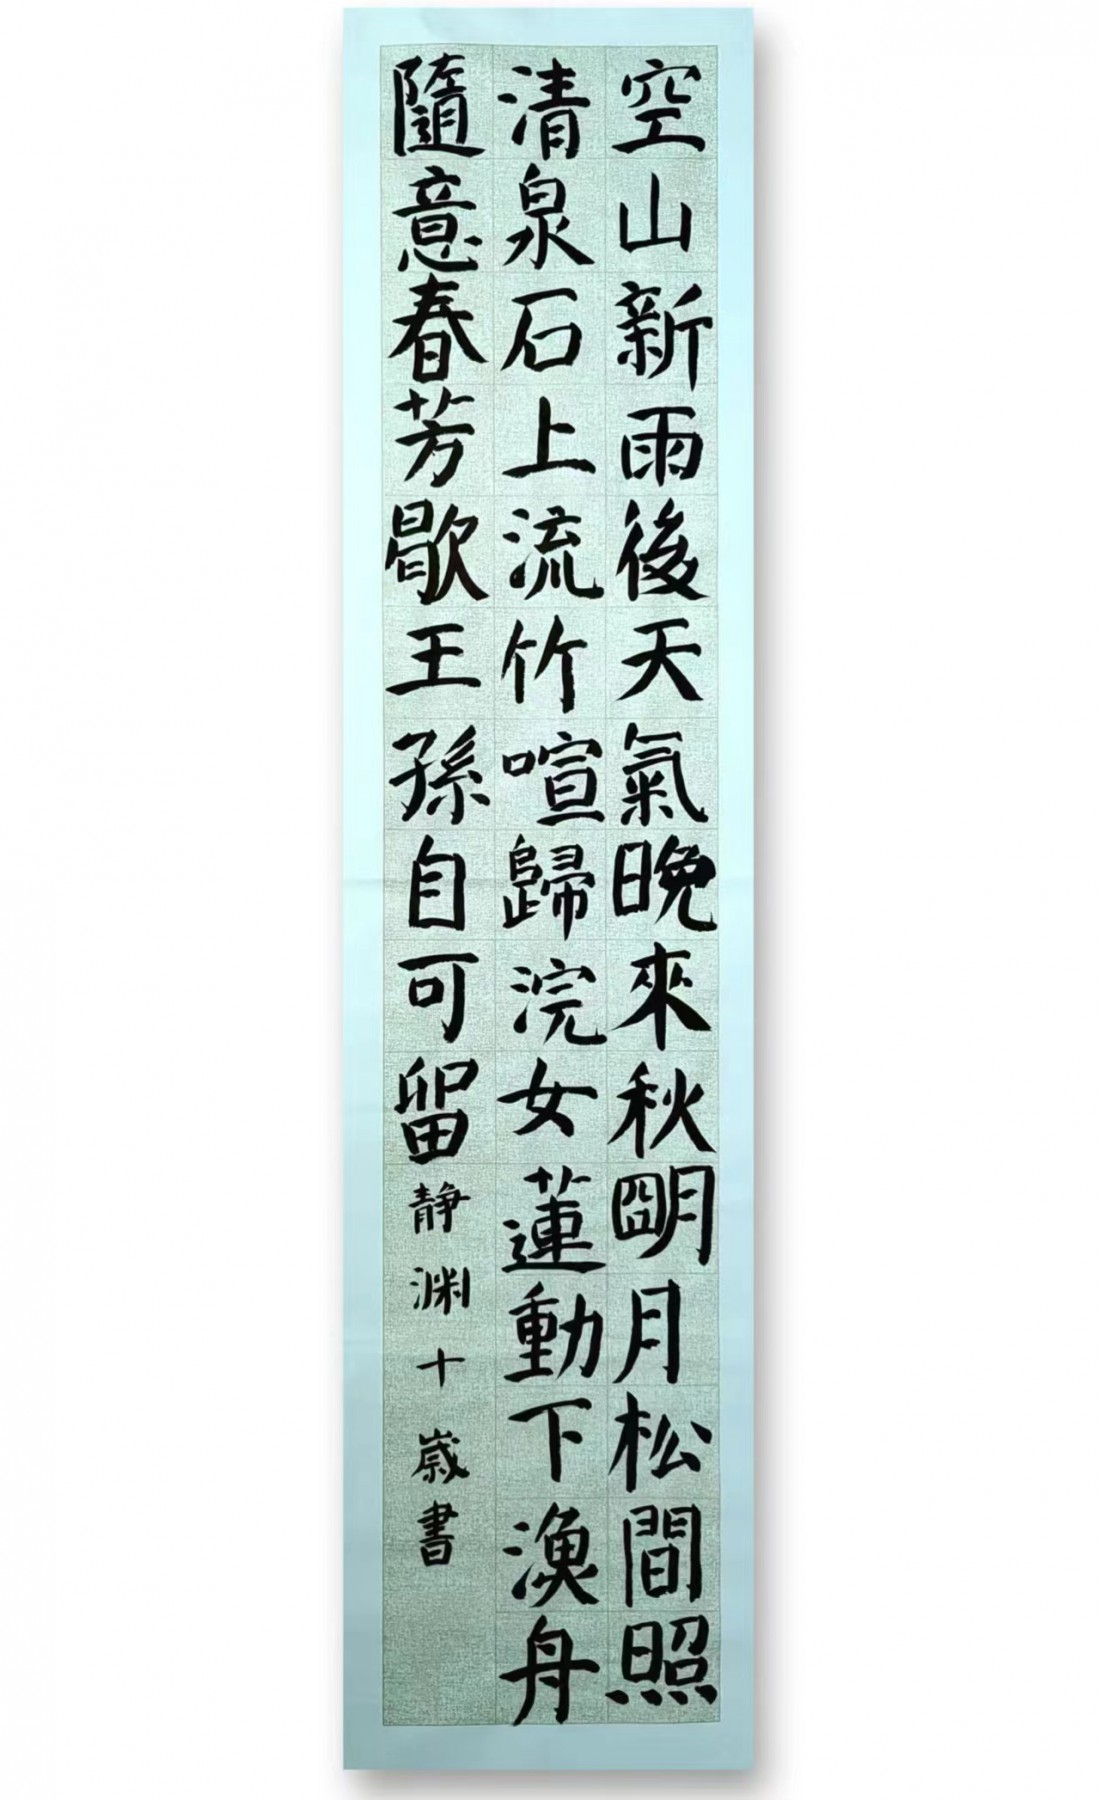 空山新雨後天氣晚來秋朙月松間照
清泉石上流竹喧歸浣女蓮動下漁舟
隨意春芳歇王孫自可留静渊十歲書